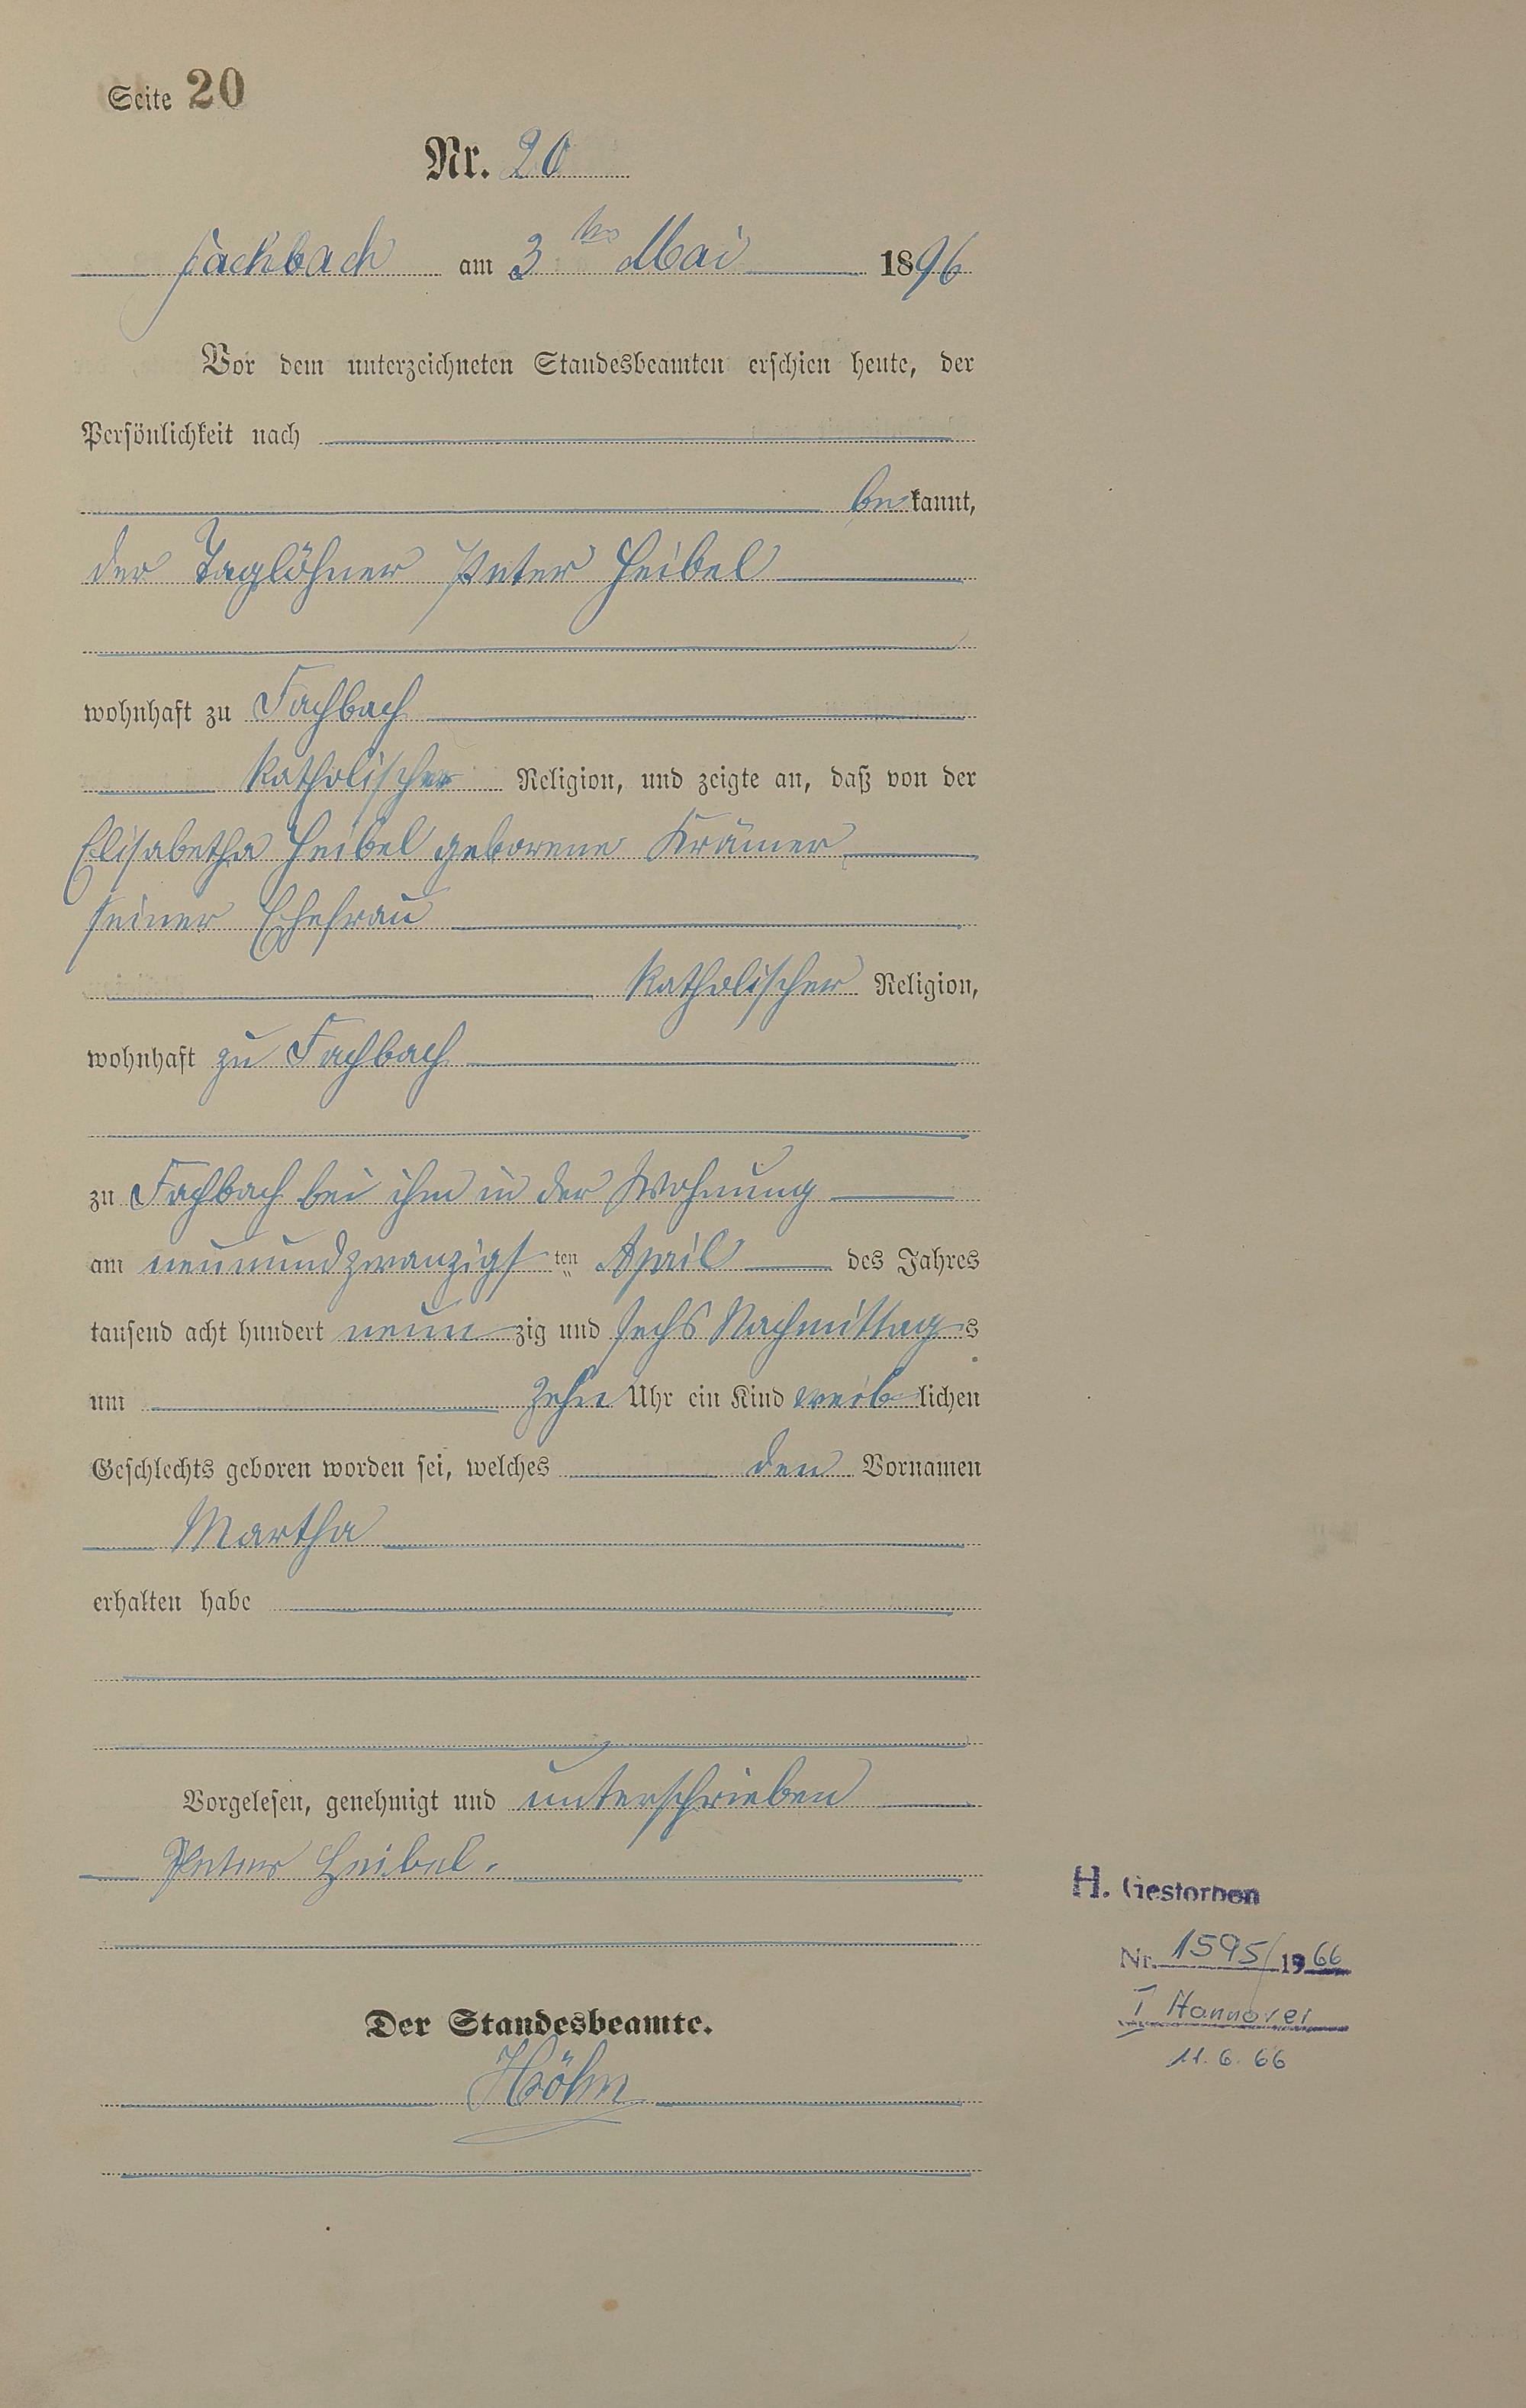 Seite 20
Nr. 20
Fachbach am 3ten Mai 1896
Vor dem unterzeichneten Standesbeamten erschien heute, der
Persönlichkeit nach
bekannt,
der Taglöhner Peter Heibel
wohnhaft zu Fachbach
katholischer Religion, und zeigte an, daß von der
Elisabetha Heibel geborene Krämer
seiner Ehefrau
katholischer Religion,
wohnhaft zu Fachbach
zu Fachbach bei ihm in der Wohnung
am neunundzwanzigsten April des Jahres
tausend acht hundert neunzig und sechs Nachmittags
um zehn Uhr ein Kind weiblichen
Geschlechts geboren worden sei, welches den Vornamen
Martha
erhalten habe
Vorgelesen, genehmigt und unterschrieben
Peter Heibel.
Der Standesbeamte.
Höhn
H. Gestorben
Nr. 1595/1966
I Hannover
11.6.66